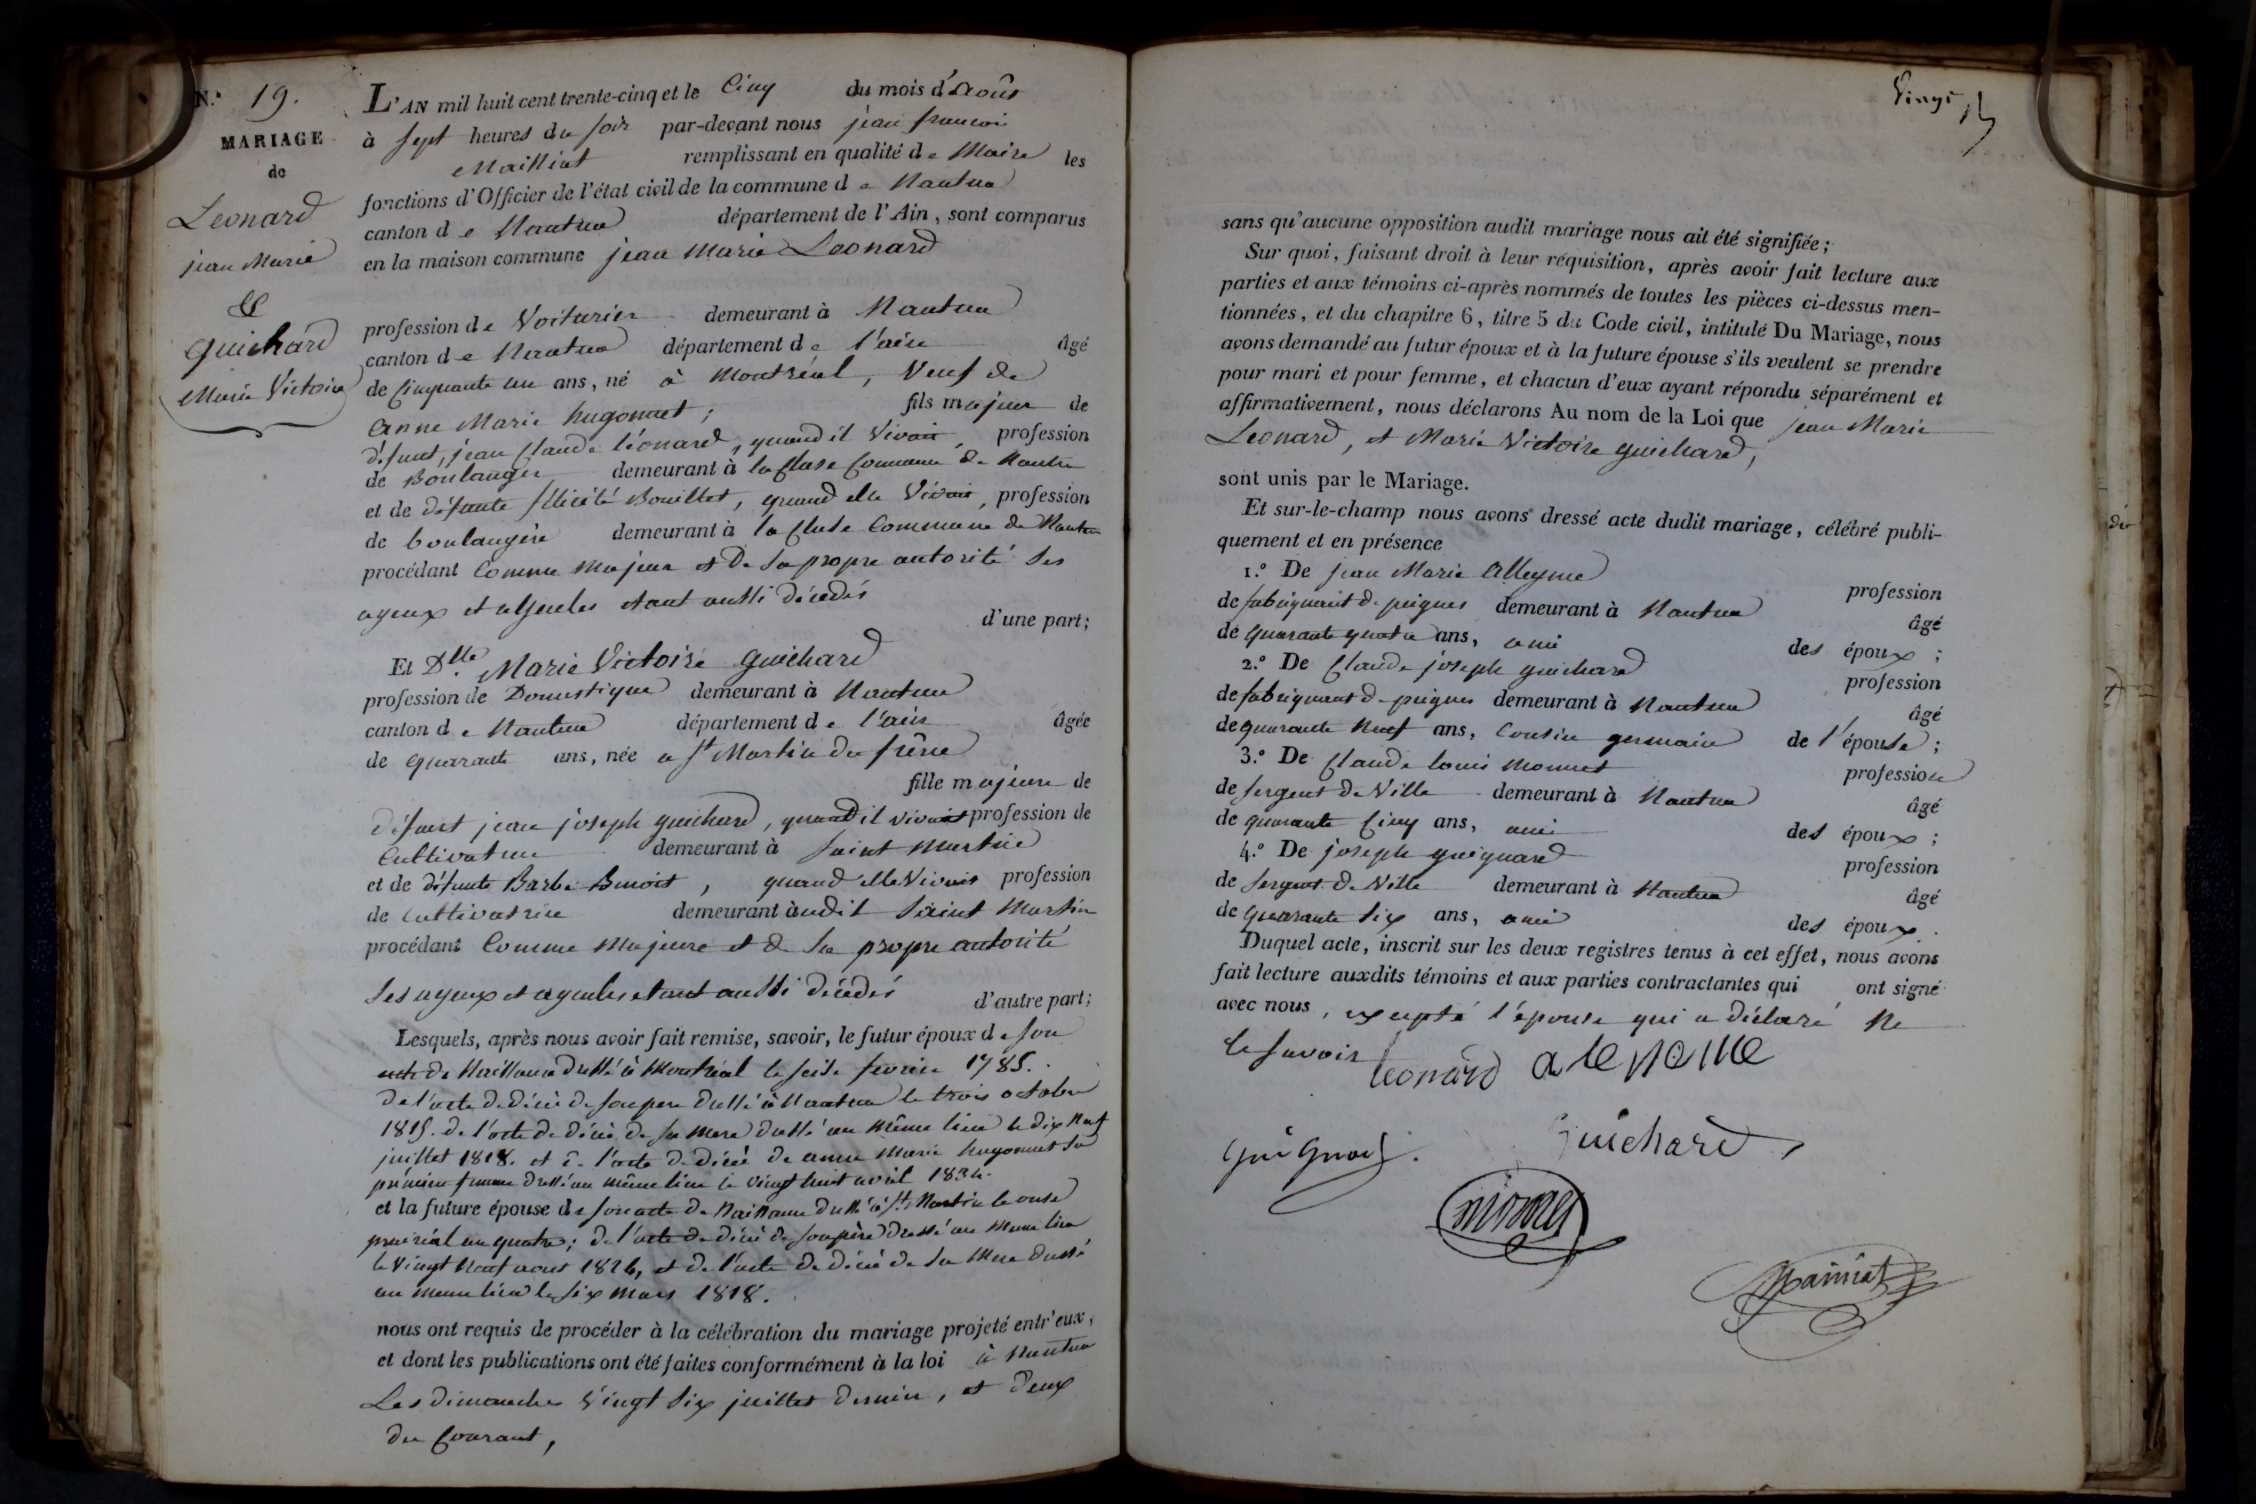 N.° 19.
MARIAGE
de
Leonard
jean Marie
&
guichard
Marie Victoire
L'AN mil huit cent trente-cinq et le Cinq du mois d'Août
à Sept heures du soir par-devant nous jean francois
Mailliat remplissant en qualité de Maire les
fonctions d'Officier de l'état civil de la commune de Nantua
canton de Nantua département de l'Ain, sont comparus
en la maison commune jean Marie Leonard
profession de Voiturier demeurant à Nantua
canton de Nantua département de l'ain âgé
de Cinquante un ans, né à Montréal, Veuf de
Anne Marie hugonnet; fils majeur de
défunt, jean Claude léonard, quand il Vivait, profession
de Boulanger demeurant à la Cluse Commune de Nantua
et de défunte félicité Bouillet, quand elle Vivait, profession
de boulangère demeurant à la Cluse Commune de Nantua
procédant Comme Majeur et De Sa propre autorité Ses
ayeux et ayeules étant aussi décédés
d'une part;
Et Dlle. Marie Victoire guichard
profession de Domestique demeurant à Nantua
canton de Nantua département de l'ain âgée
de quarante ans, née a St Martin du frêne
fille majeure de
défunt jean joseph guichard, quand il vivait profession de
Cultivateur demeurant à Saint Martin
et de défunte Barbe Benoit, quand elle Vivait profession
de Cultivatrice demeurant audit Saint Martin
procédant Comme Majeure et de Sa propre autorité
Ses ayeux et ayeules étant aussi décédés
d'autre part;
Lesquels, après nous avoir fait remise, savoir, le futur époux de Son
acte de Naissance Dressé à Montréal le seize fevrier 1785.
De l'acte de décès de Son pere dressé à Nantua le trois octobre
1815. de l'acte de décès de Sa Mere dressé au même lieu le dix Neuf
juillet 1818. et de l'acte de décès de anne Marie hugonnet Sa
premiere femme dressé au même lieu le Vingt huit avril 1834.
et la future épouse de Son acte de Naissance dressé à St. Martin le onze
prairial an quatre; de l'acte de décès de Son père dressé au Meme lieu
le Vingt Neuf aout 1826, et de l'acte de décès de Sa Mere dressé
au meme lieu le Six Mars 1818.
nous ont requis de procéder à la célébration du mariage projeté entr'eux,
et dont les publications ont été faites conformément à la loi à Nantua
Les dimanches Vingt Six juillet dernier, et deux
du Courant,
Vingt
sans qu'aucune opposition audit mariage nous ait été signifiée;
Sur quoi, faisant droit à leur réquisition, après avoir fait lecture aux
parties et aux témoins ci-après nommés de toutes les pièces ci-dessus men-
tionnées, et du chapitre 6, titre 5 du Code civil, intitulé Du Mariage, nous
avons demandé au futur époux et à la future épouse s'ils veulent se prendre
pour mari et pour femme, et chacun d'eux ayant répondu séparément et
affirmativement, nous déclarons Au nom de la Loi que jean Marie
Leonard, et Marie Victoire guichard,
sont unis par le Mariage.
Et sur-le-champ nous avons dressé acte dudit mariage, célébré publi-
quement et en présence
1.° De jean Marie Alleyme profession
de fabriquant de peignes demeurant à Nantua âgé
de quarante quatre ans, ami des époux;
2.° De Claude joseph guichard profession
de fabriquant de peignes demeurant à Nantua âgé
de quarante Neuf ans, Cousin germain de l'épouse;
3.° De Claude louis Monnet profession
de Sergent de Ville demeurant à Nantua âgé
de quarante Cinq ans, ami des époux;
4.° De joseph guignard profession
de Sergent de Ville demeurant à Nantua âgé
de quarante Six ans, ami des époux.
Duquel acte, inscrit sur les deux registres tenus à cet effet, nous avons
fait lecture auxdits témoins et aux parties contractantes qui ont signé
avec nous, excepté l'épouse qui a déclaré Ne
le Savoir
leonard
guignard.
guichard
monnet
Mailliat